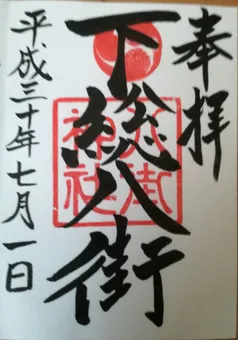 奉拝
下総八街
八街神社
平成三十年七月一日